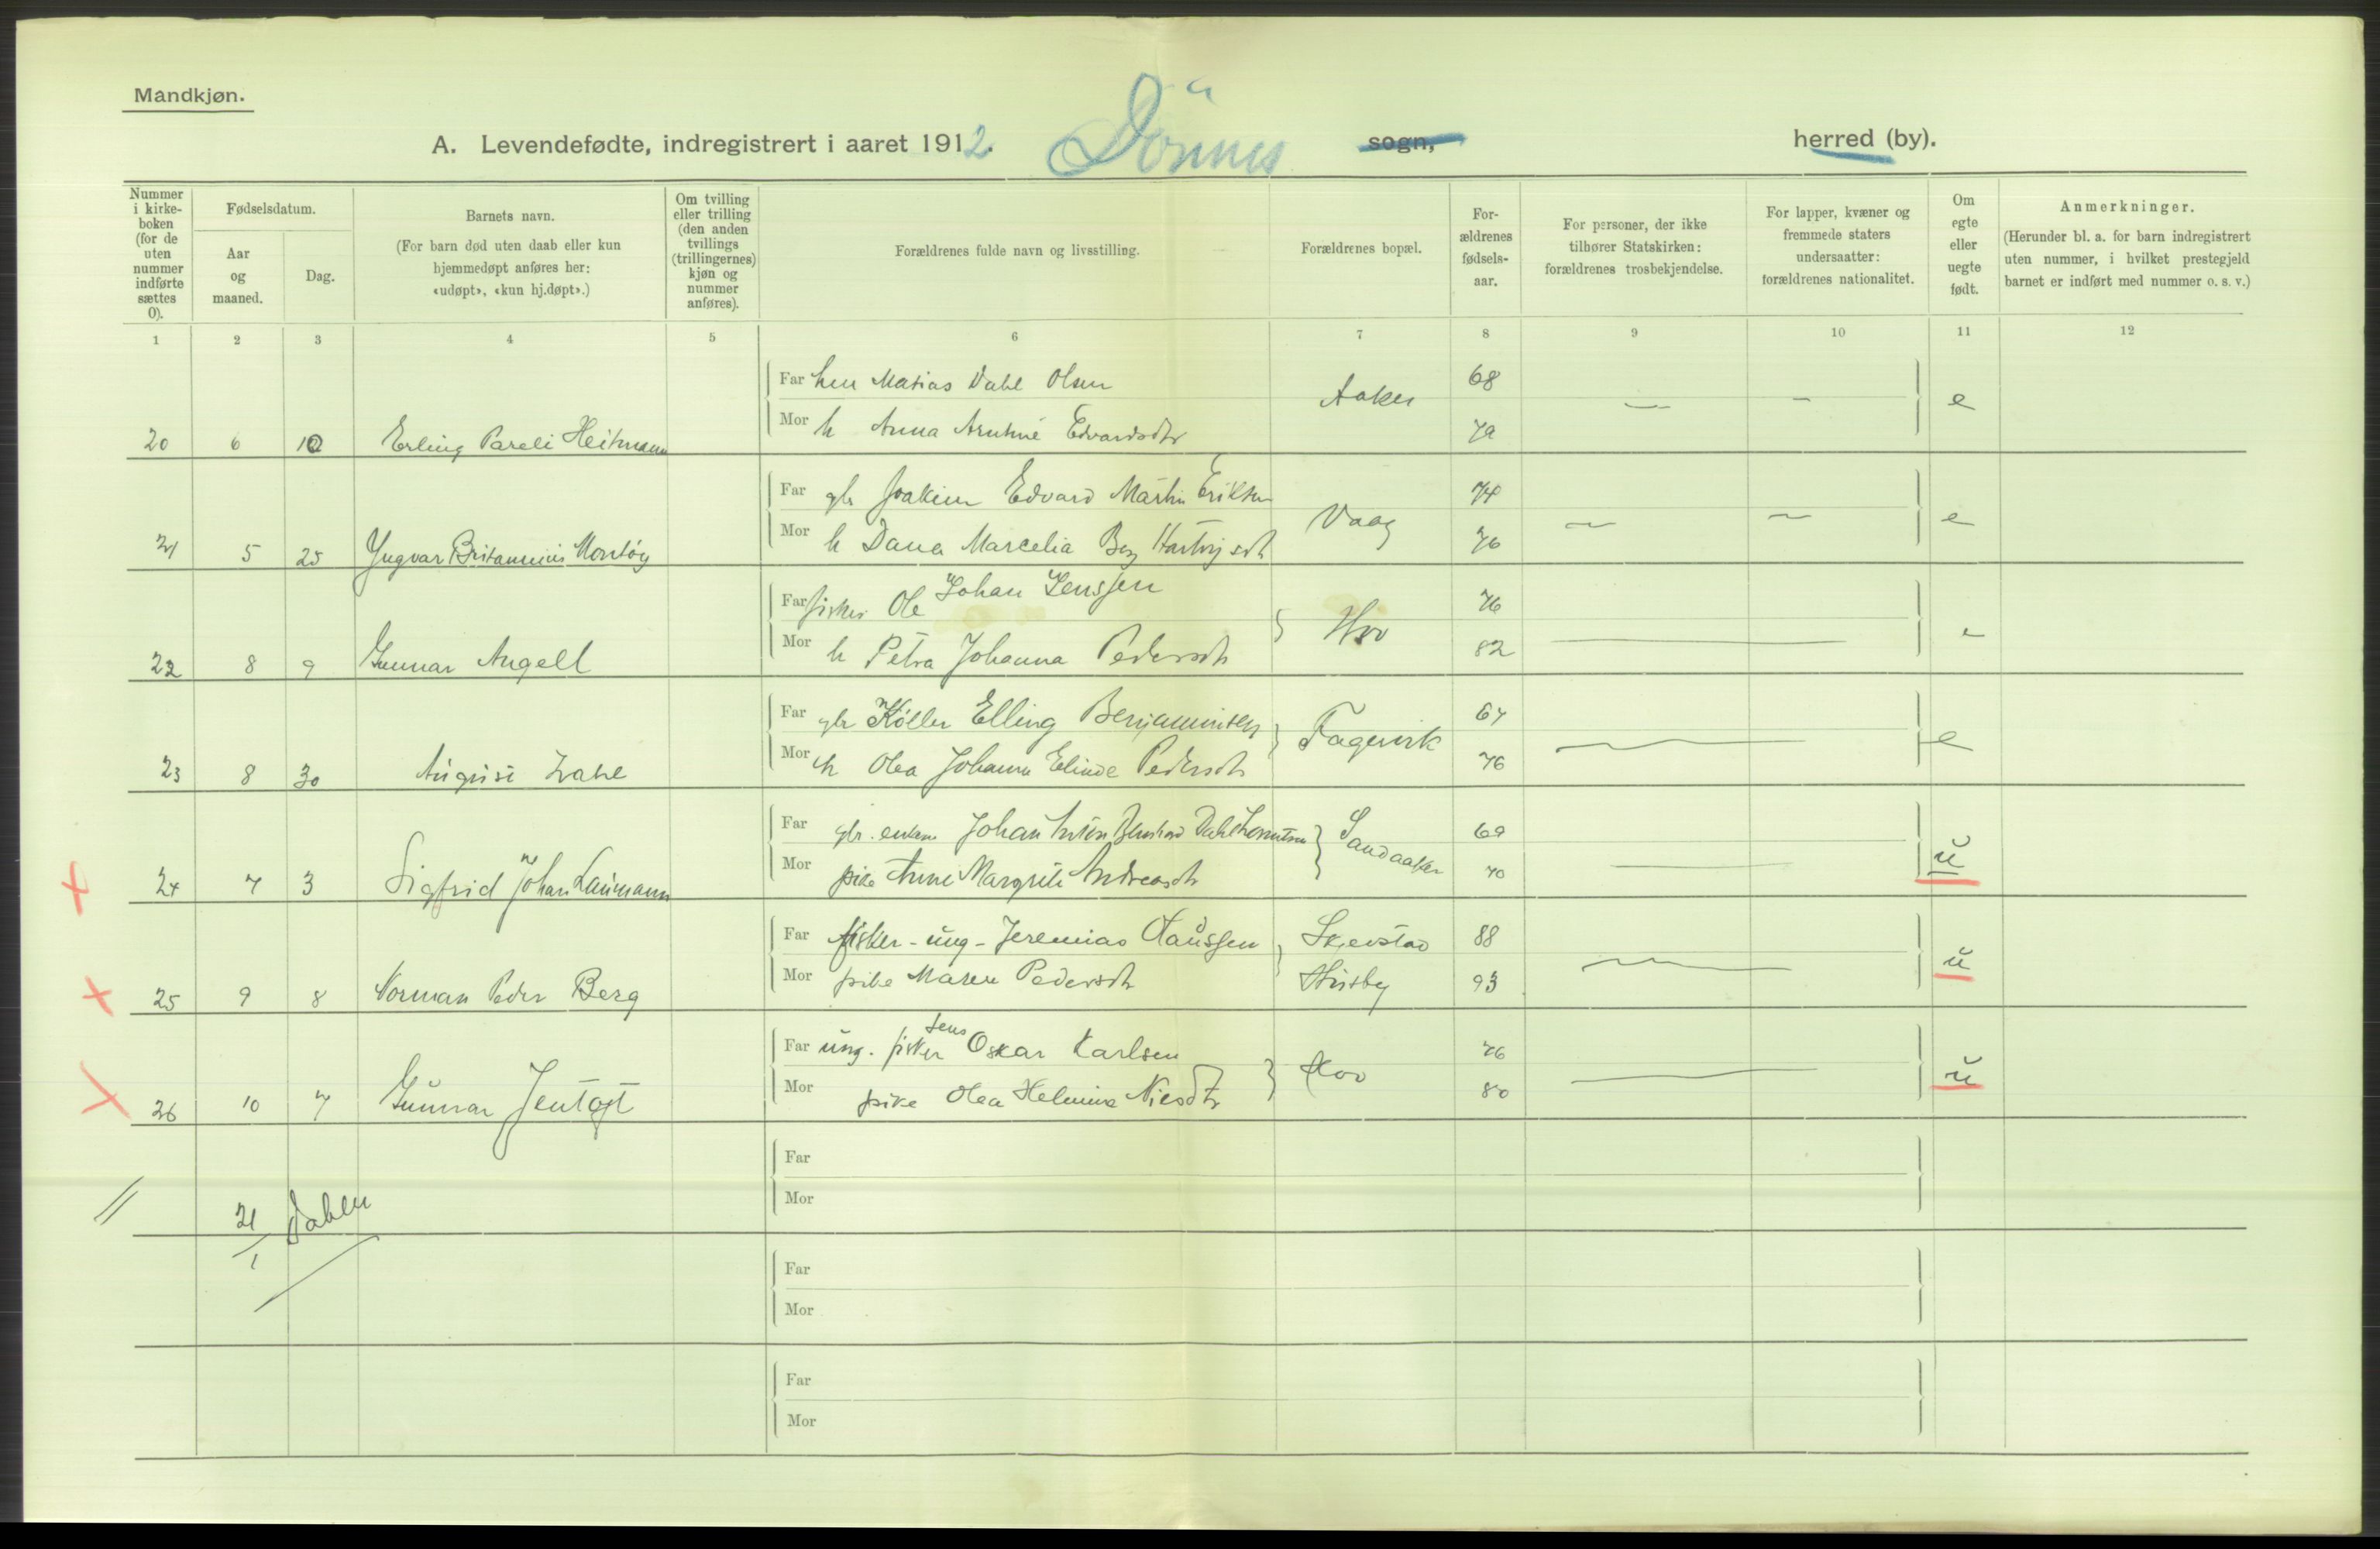 Mandkjøn.
A. Levendefødte, indregistrert i aaret 1912. Dönnes sogn, herred (by).
Nummer i kirke- boken (for de uten nummer indførte sættes 0).
Fødselsdatum.
Aar og maaned.
Dag.
Barnets navn.
(For barn død uten daab eller kun hjemmedøpt anføres her: «udøpt», «kun hj.døpt».)
Om tvilling eller trilling (den anden tvillings (trillingernes) kjøn og nummer anføres).
Forældrenes fulde navn og livsstilling.
Forældrenes bopæl.
For- ældrenes fødsels- aar.
For personer, der ikke tilhører Statskirken: forældrenes trosbekjendelse.
For lapper, kvæner og fremmede staters undersaatter: forældrenes nationalitet.
Om egte eller uegte født.
Anmerkninger.
(Herunder bl. a. for barn indregistrert uten nummer, i hvilket prestegjeld barnet er indført med nummer o. s. v.)
1 2 3 4 5 6 7 8 9 10 11 12
Far Matias Dahl Olsen Aaker 68
Mor h Anna Edvardsdtr 79
20 6 10 Erling Pareli Heitmann — — e
Far gbr Joakim Edvard Martin Eriksen Vaag 74
Mor h Dana Marcelia Hartvigsdt 76
21 5 25 Yngvar Britannius e
Far fisker Ole Johan Jenssen Hov 76
Mor h Petra Johanna Pedersdtr 82
22 8 9 Gunnar Angell e
Far gbr Köller Elling Benjaminsen Fagervik 67
Mor h Olea Johanna Elinde Pedersdtr 76
23 8 30 August Zahl e
Far gbr. enkem Johan Anton Bernhard Dahl Sandaaker 69
Mor pike Anne Margrete Andreasdtr 70
24 7 3 Sigfrid Johan Laumann u
Far fisker - ung - Jeremias Claussen 88
Mor pike Maren Pedersdtr Husby 93
25 9 8 Norman Peder Berg u
Far ung. fisker Jens Oskar Karlsen Hov 76
Mor pike Olea Helmine 80
26 10 7 Gunnar Jentoft u
Far
Mor
21/1 Dahlen
Far
Mor
Far
Mor